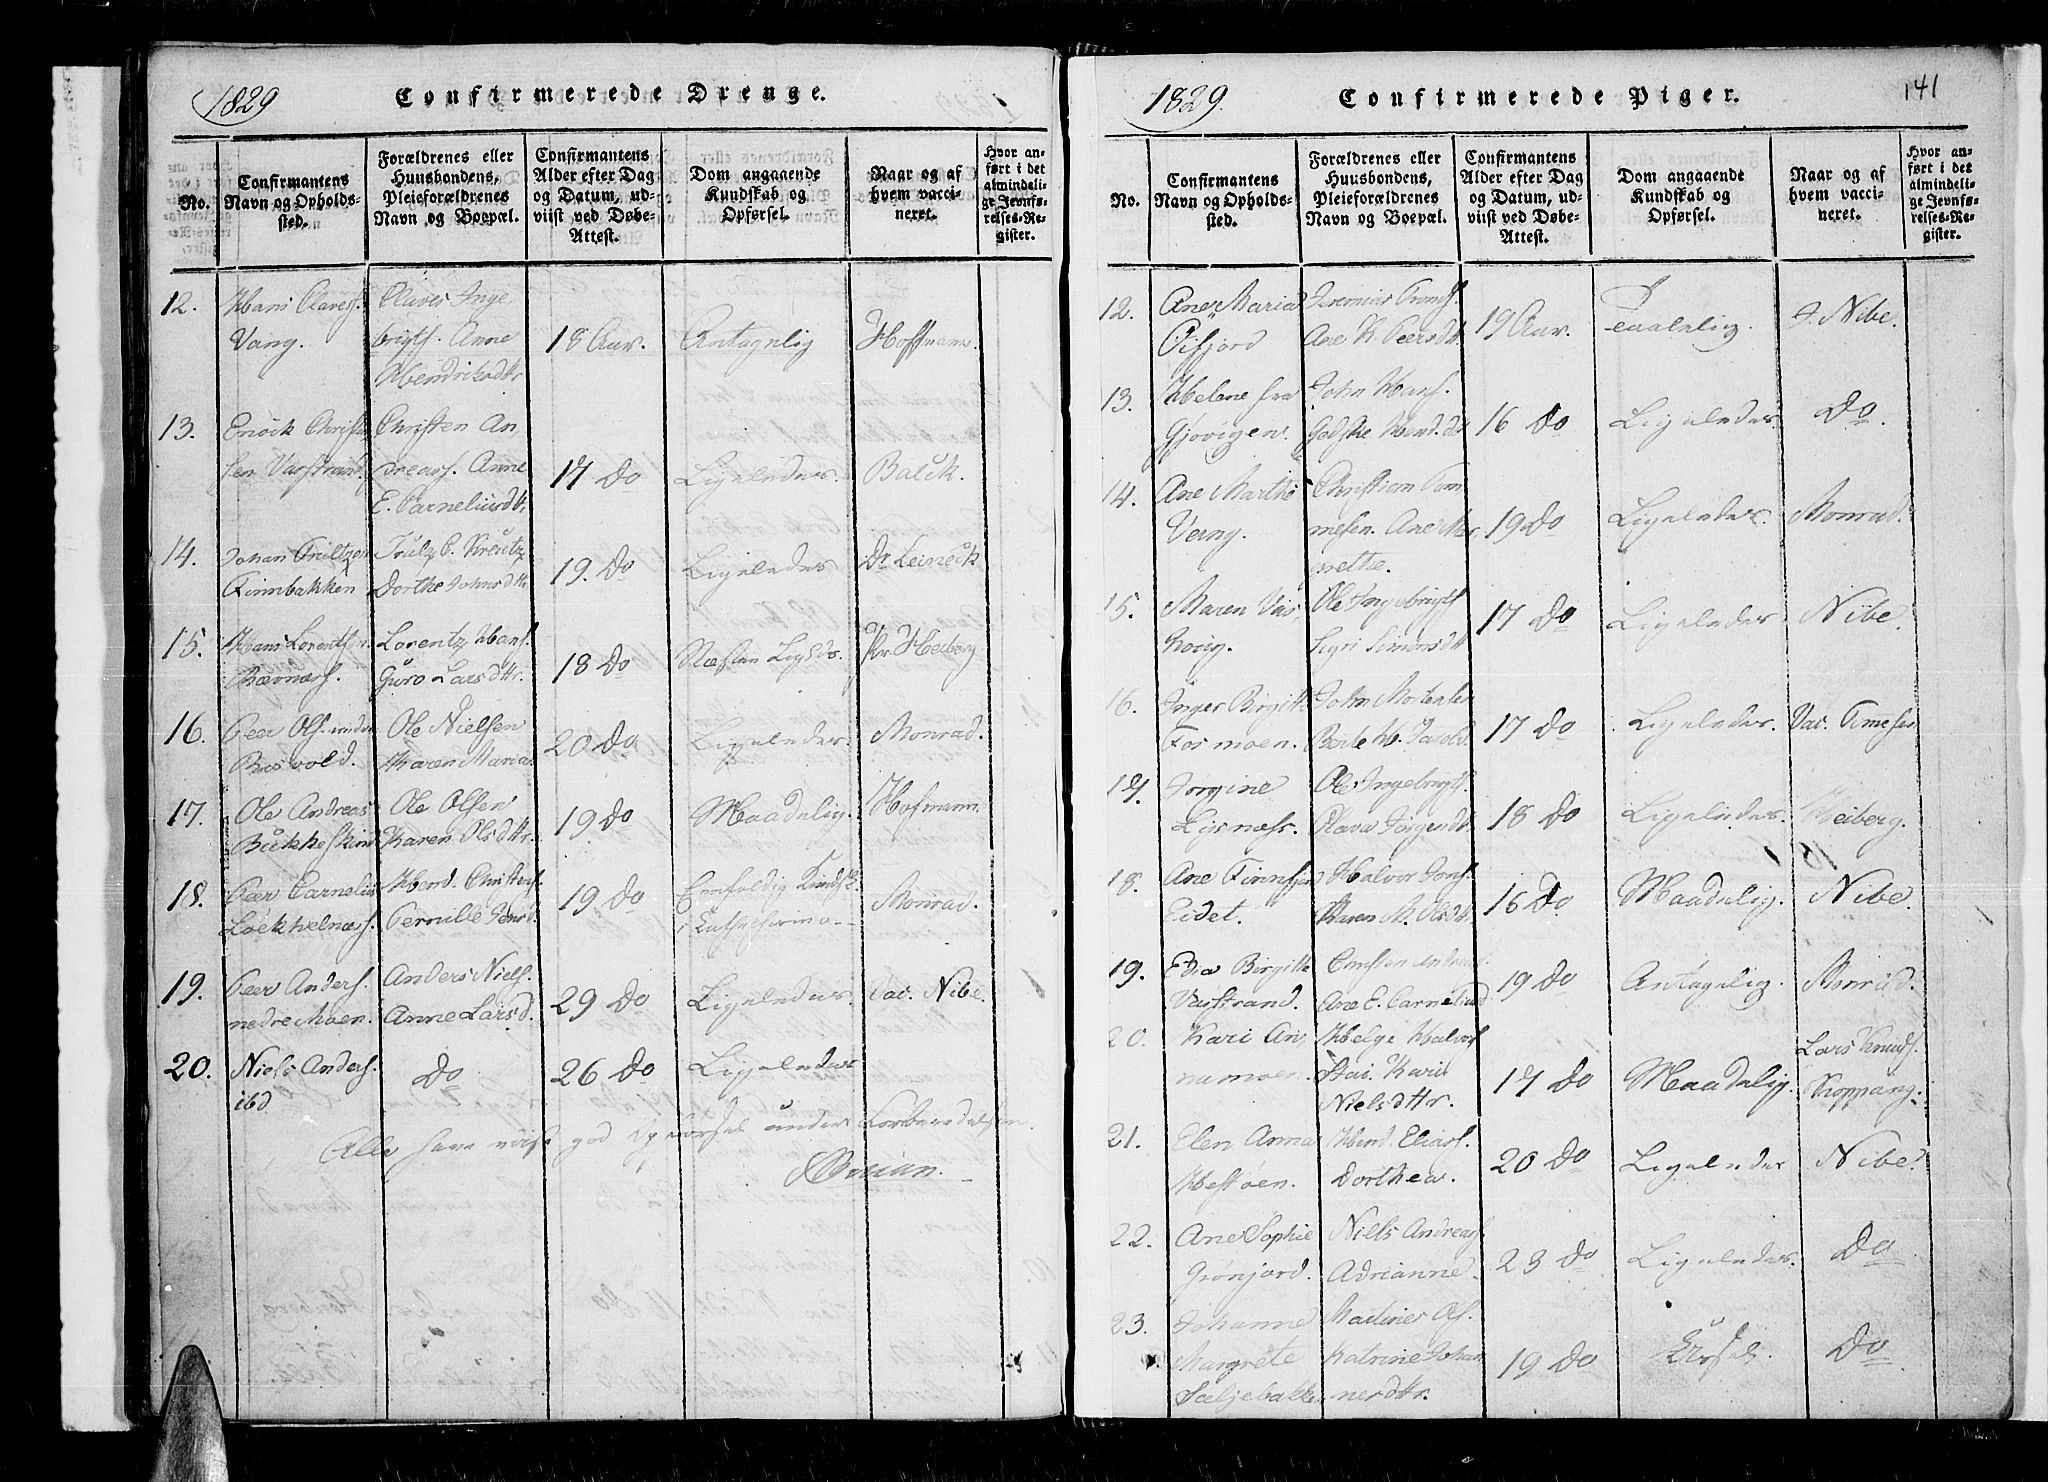 1829
Confirmerede Drenge.
No.
Confirmantens Navn og Opholdssted.
Forældrenes eller Huusbondens, Pleieforældrenes Navn og Boepæl.
Confirmantens Alder efter Dag og Datum, udviist ved Døbe-Attest.
Dom angaaende Kundskab og Opførsel.
Naar og af hvem vaccineret.
Hvor anført i det almindelige Jevnførelses-Register.
12. Hans Olavess. Olaves Inge
Vang. brigts. Anne 18 Aar. Antagelig Hoffmann.
Hendriksdttr
13. Enock Christen Christen An
sen Varstrand dreass. Anne 17 Do Ligeledes. Balck.
E. Cornelius dtr
14. Johan
Finnbakken Dorthe Johns dtr 19. Do Ligeledes Dr Leineck
15. Hans Lorents Lorentz Hans.
Guro Lars dttr. 18 Do Næsten Heiberg
16. Peer Ols. Ole Nielsen
Karen Maria 20 Do Ligeledes. Monrad.
17. Ole Andreas Ole Olsen
Karen Olsdttr. 19 Do Maadelig. Hofmann.
18. Peer Cornelius Hend. Christens.
Pernille 19 Do Eenfoldig Monrad.
19. Peer Anders. Anders Niels.
nedre Moen. Anne Larsd. 29 Do Ligeledes Vac. Nibe.
20. Niels Anders. Do 26 Do Ligeledes
ibd
Alle have viist god Opførsel under Forberedelsen.
1829.
Confirmerede Piger.
141
No.
Confirmantens Navn og Opholdssted.
Forældrenes eller Huusbondens, Pleieforældrenes Navn og Boepæl.
Confirmantens Alder efter Dag og Datum, udviist ved Døbe-Attest.
Dom angaaende Kundskab og Opførsel.
Naar og af hvem vaccineret.
Hvor anført i det almindelige Jevnførelses-Register.
12. Ane Maria Jeremias
Ane K. Peersdtr. 19 Aar. Taalelig. J. Nibe.
13. Helene fra John Hans.
16 Do Ligeledes Do.
14. Ane Marthe Christian Tom
mesen. Ane Mar 19 Do Ligeledes. Monrad.
grethe.
15. Maren Ole Ingebrigts
Sigri Simonsdtr 17 Do Ligeledes Nibe.
16. Inger Birgitte John Mortensen
Fosmoen. 17 Do Ligeledes. Vac.
17. Jørgine Ole Ingebrigts.
Lysness. Olava Jørgendtr. 18 Do Ligeledes. Heiberg.
18. Ane Halvor Jons.
Eidet. Karen M. Olsdtr 16 Do Maadelig. Nibe.
19. Birgitte Christen Andreas.
Varstrand. Ane E. Cornelius 19 Do Antagelig. Monrad.
20. Kari An Helge Halvors
namoen. Kari 17 Do Maadelig. Lars Knuds.
Nielsdttr. Koppang.
21. Elen Anna Hend. Elias.
Hestøen. Dorthea. 20 Do Ligeledes Nibe.
22. Ane Sophie Niels Andreas.
Grønjord. Adrianne. 23 Do Ligeledes. Do
23. Johanne Martines Ols.
Margrete Katrine Johan 19 Do Do
Sæljebakken nesdttr.